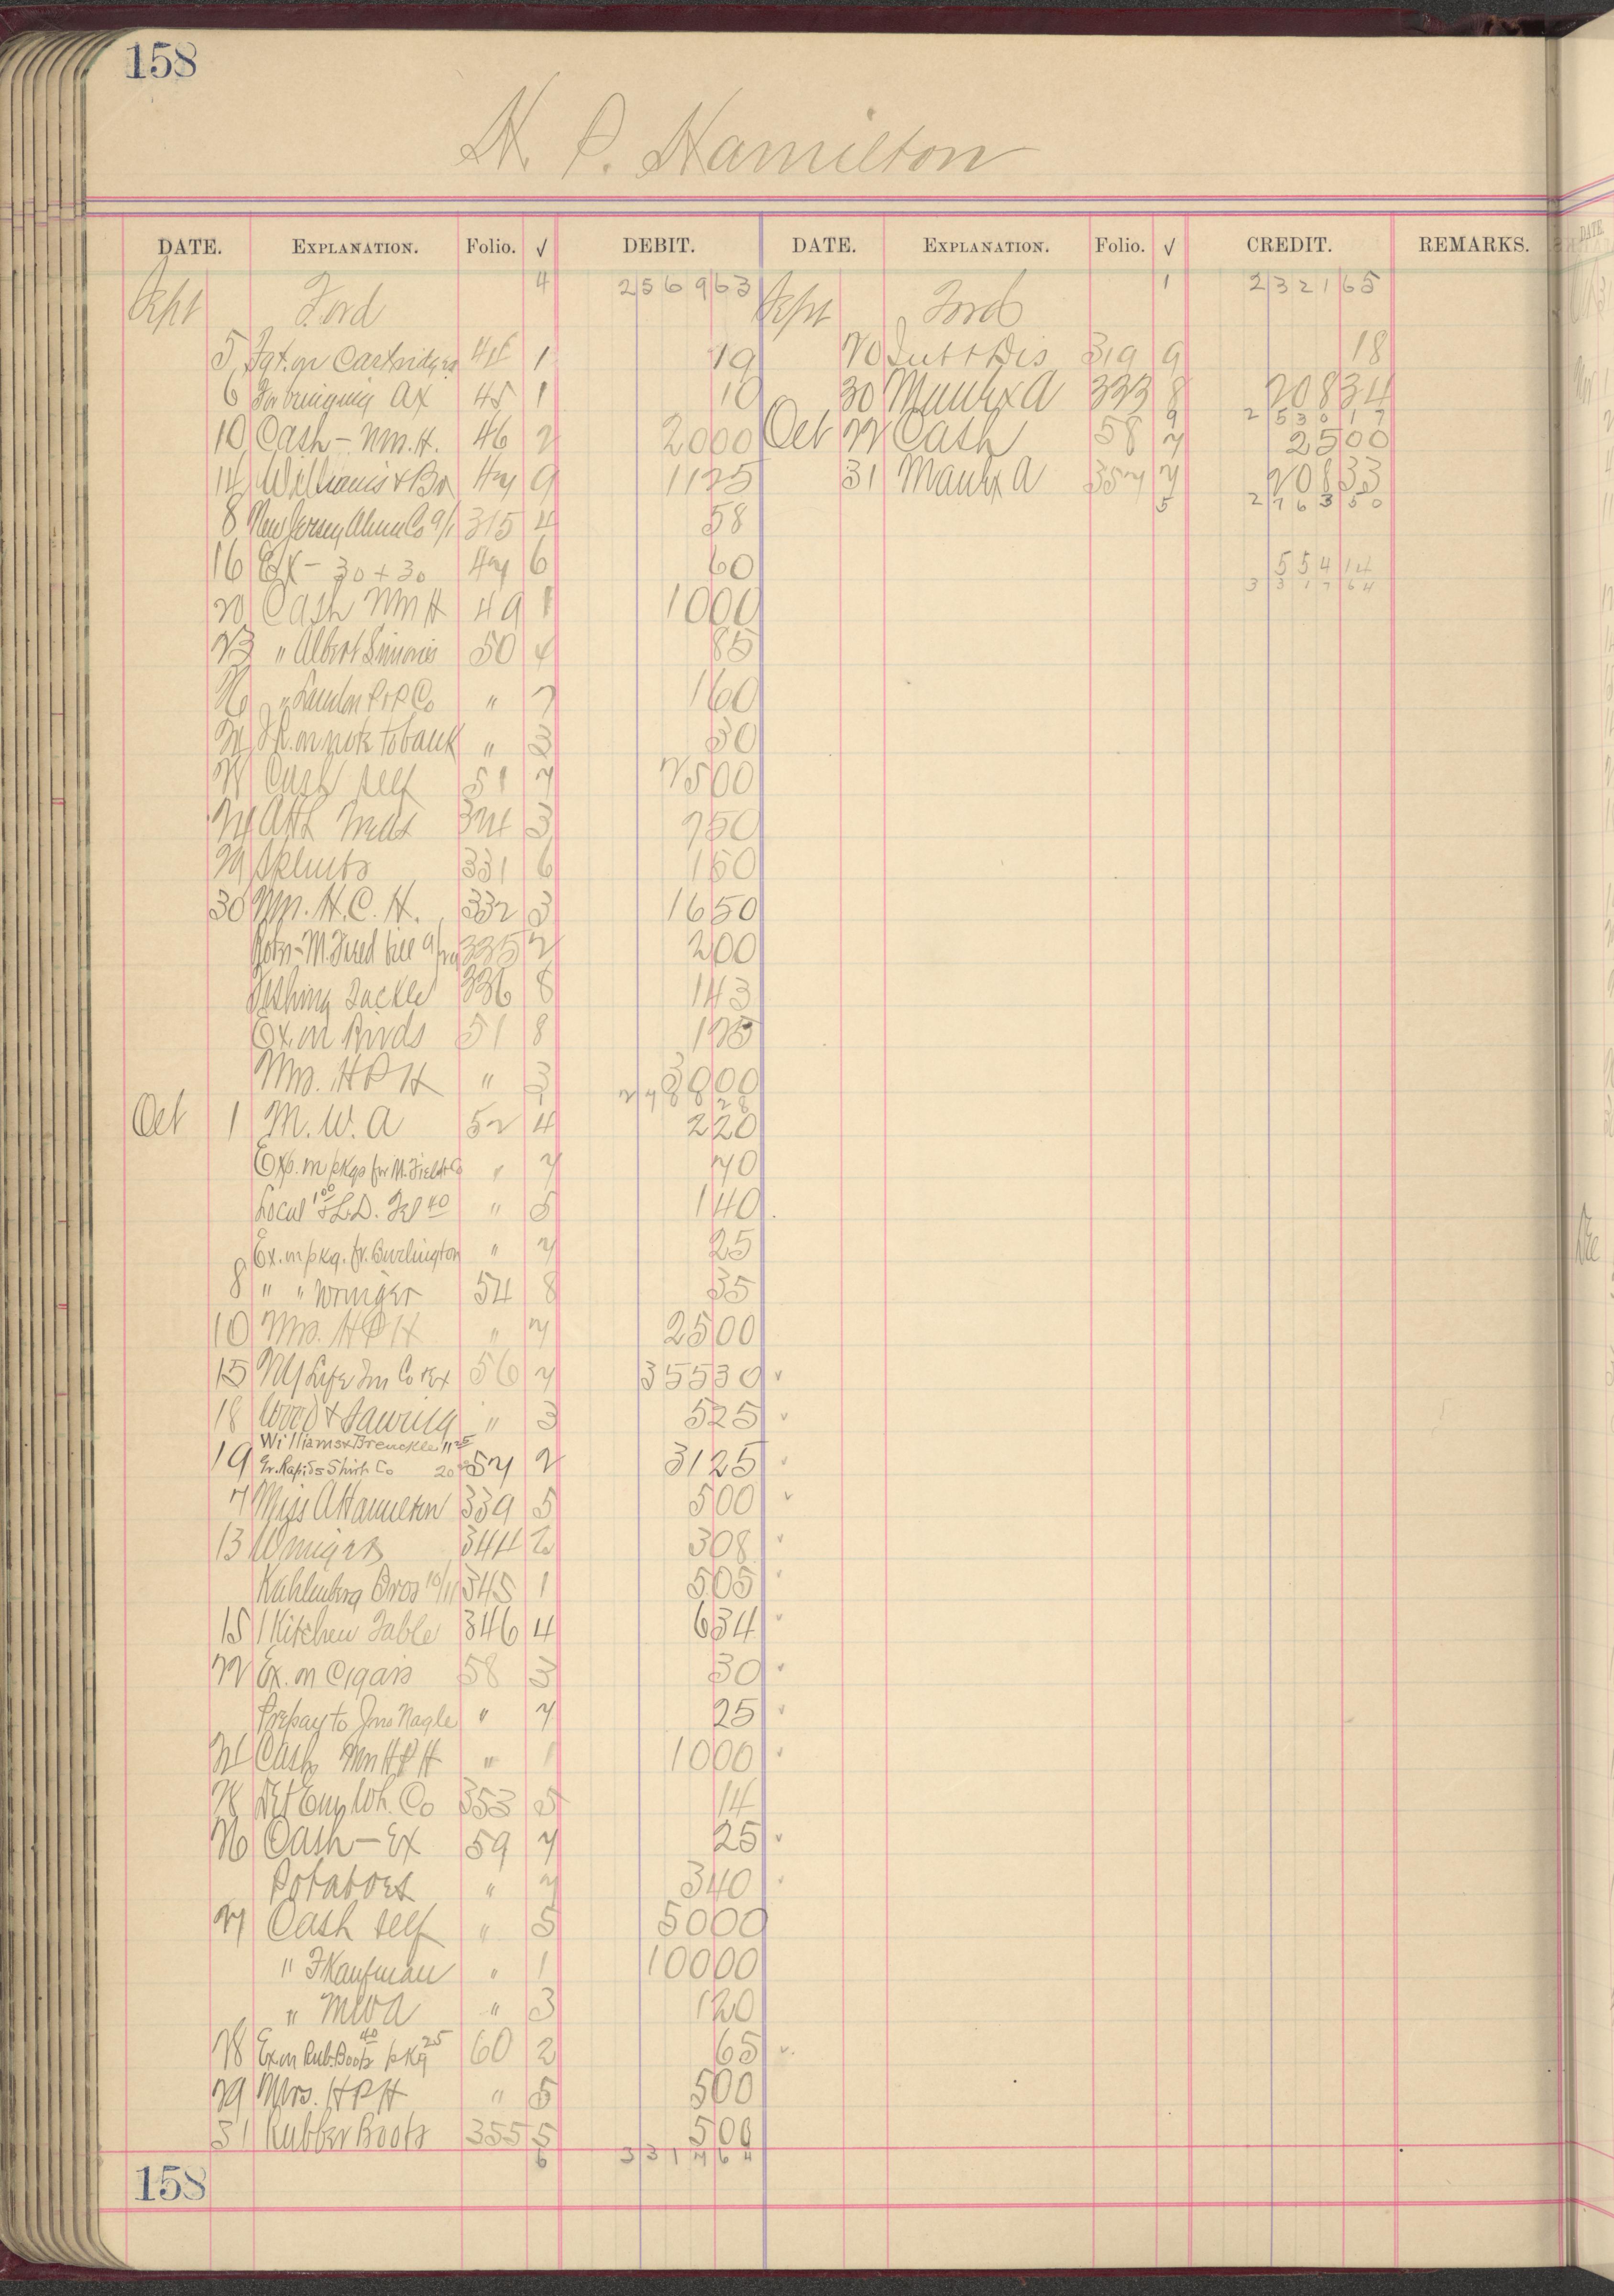 158
H. P. Hamilton
DATE. EXPLANATION. Folio. √ DEBIT. DATE. EXPLANATION. Folio. √ CREDIT. REMARKS.
Sept Ford 4 2569 63 Sept Ford 1 2321 65
5 Fgt. on Cartridges 44 1 19 20 Int + Dis 319 9 18
6 For bringing Ax 45 1 10 30 A 333 8 208 34
9 2530 17
10 Cash - Mrs. H. 46 2 20 00 Oct 22 Cash 58 7 25 00
14 Williams & Br 47 9 11 25 31 A 357 7 208 33
5 2763 50
8 New Jersey Co 9/1 315 4 58
16 Ex - 30 + 30 47 6 60 554 14
3317 64
20 Cash Mrs H 49 1 10 00
23 " Albert Simonis 50 4 85
26 " P & P Co " 7 1 60
24 on note to bank " 3 30
28 Cash self 51 7 25 00
24 324 3 7 50
29 331 6 1 50
30 Mrs. H. C. H. 332 3 16 50
M. bill 9/29 335 2 2 00
Fishing Tackle 336 8 1 43
Ex. on Birds 51 8 1 25
Mrs. HPH " 3 30 00
2788 28
Oct 1 M. W. A 52 4 2 20
Exp. on pkgs fr M. Field & Co " 7 70
Local 1 00 & L.D. Tel 40 " 5 1 40
Ex. on pkg. fr. Burlington " 7 25
8 " " Wringer 54 8 35
10 Mrs. HPH " 7 25 00
15 NY Life Ins Co & Ex 56 7 355 30 √
18 Wood & Sawing " 3 5 25 √
Williams & Brenckle 11 25
19 Gr. Rapids Shirt Co 20 57 2 31 25 √
7 Miss A Hamilton 339 5 5 00 √
13 Wringers 344 2 3 08 √
Kuhlenberg Bros 10/11 345 1 5 05 √
15 1 Kitchen Table 346 4 6 34 √
22 Ex. on Cigars 58 3 30 √
Prepay to Jno Nagle " 7 25 √
24 Cash Mrs HPH " 1 10 00 √
28 Wh. Co 353 5 14
26 Cash - Ex 59 7 25 √
Potatoes " 7 3 40 √
27 Cash self " 5 50 00
" F Kaufman " 1 100 00
" MWA " 3 1 20
28 Ex on Rub. Boots 40 pkg 25 60 2 65 √
29 Mrs. HPH " 5 5 00
31 Rubber Boots 355 5 5 00
6 3317 64
158